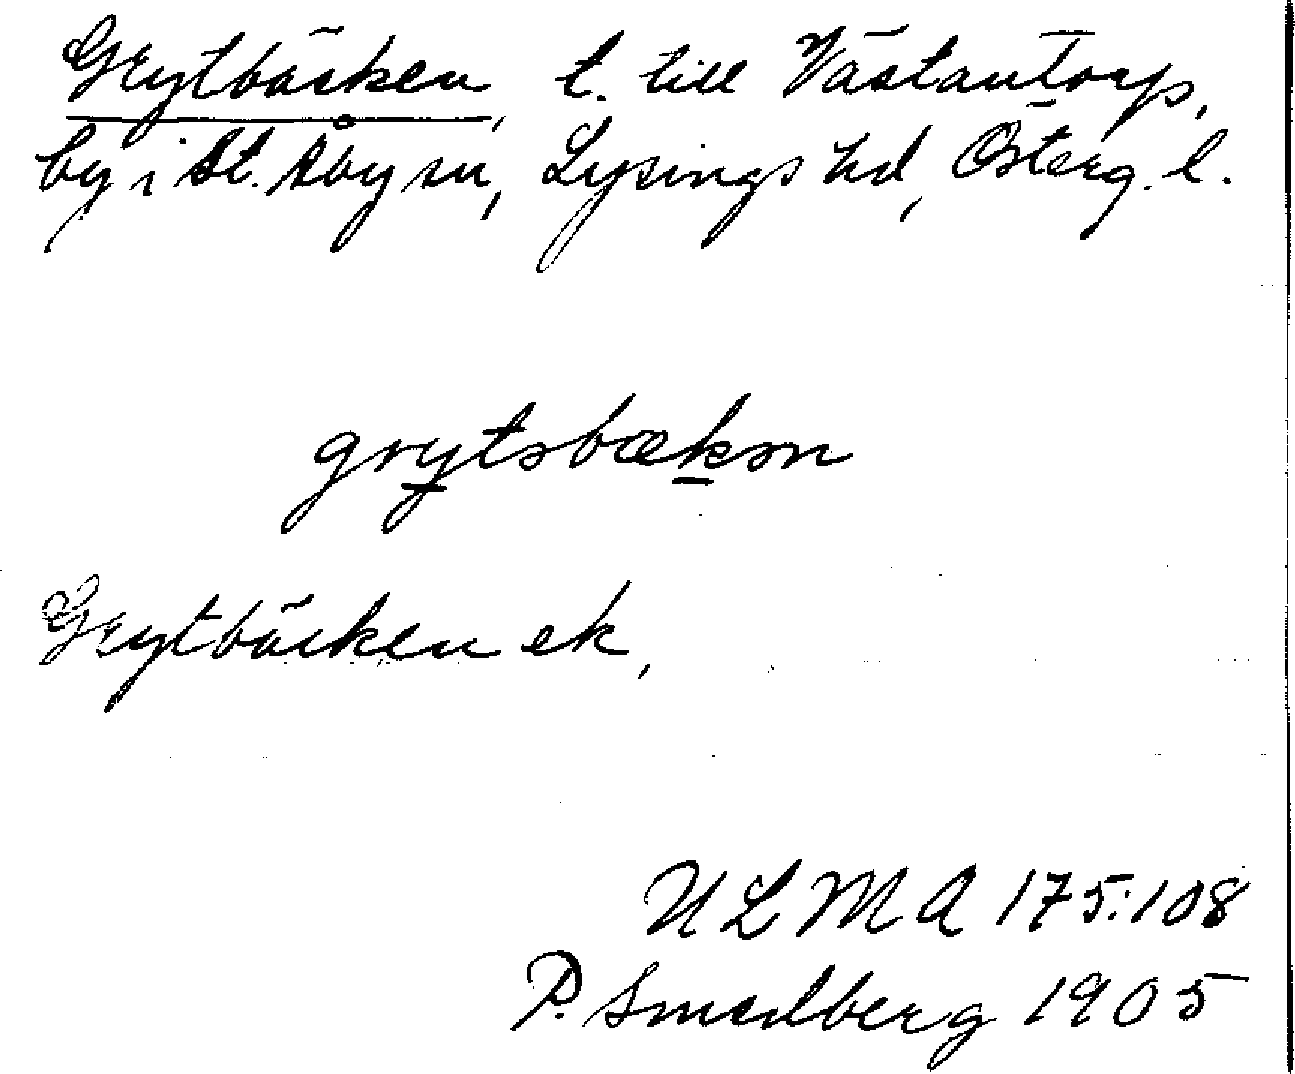 Grytbäcken, t. till Västantorp,
by i St. Åby sn, Lysings hd, Österg. l.
grytəbækən
Grytbäcken ek,
ULMA 175:108
P. Smedberg 1905